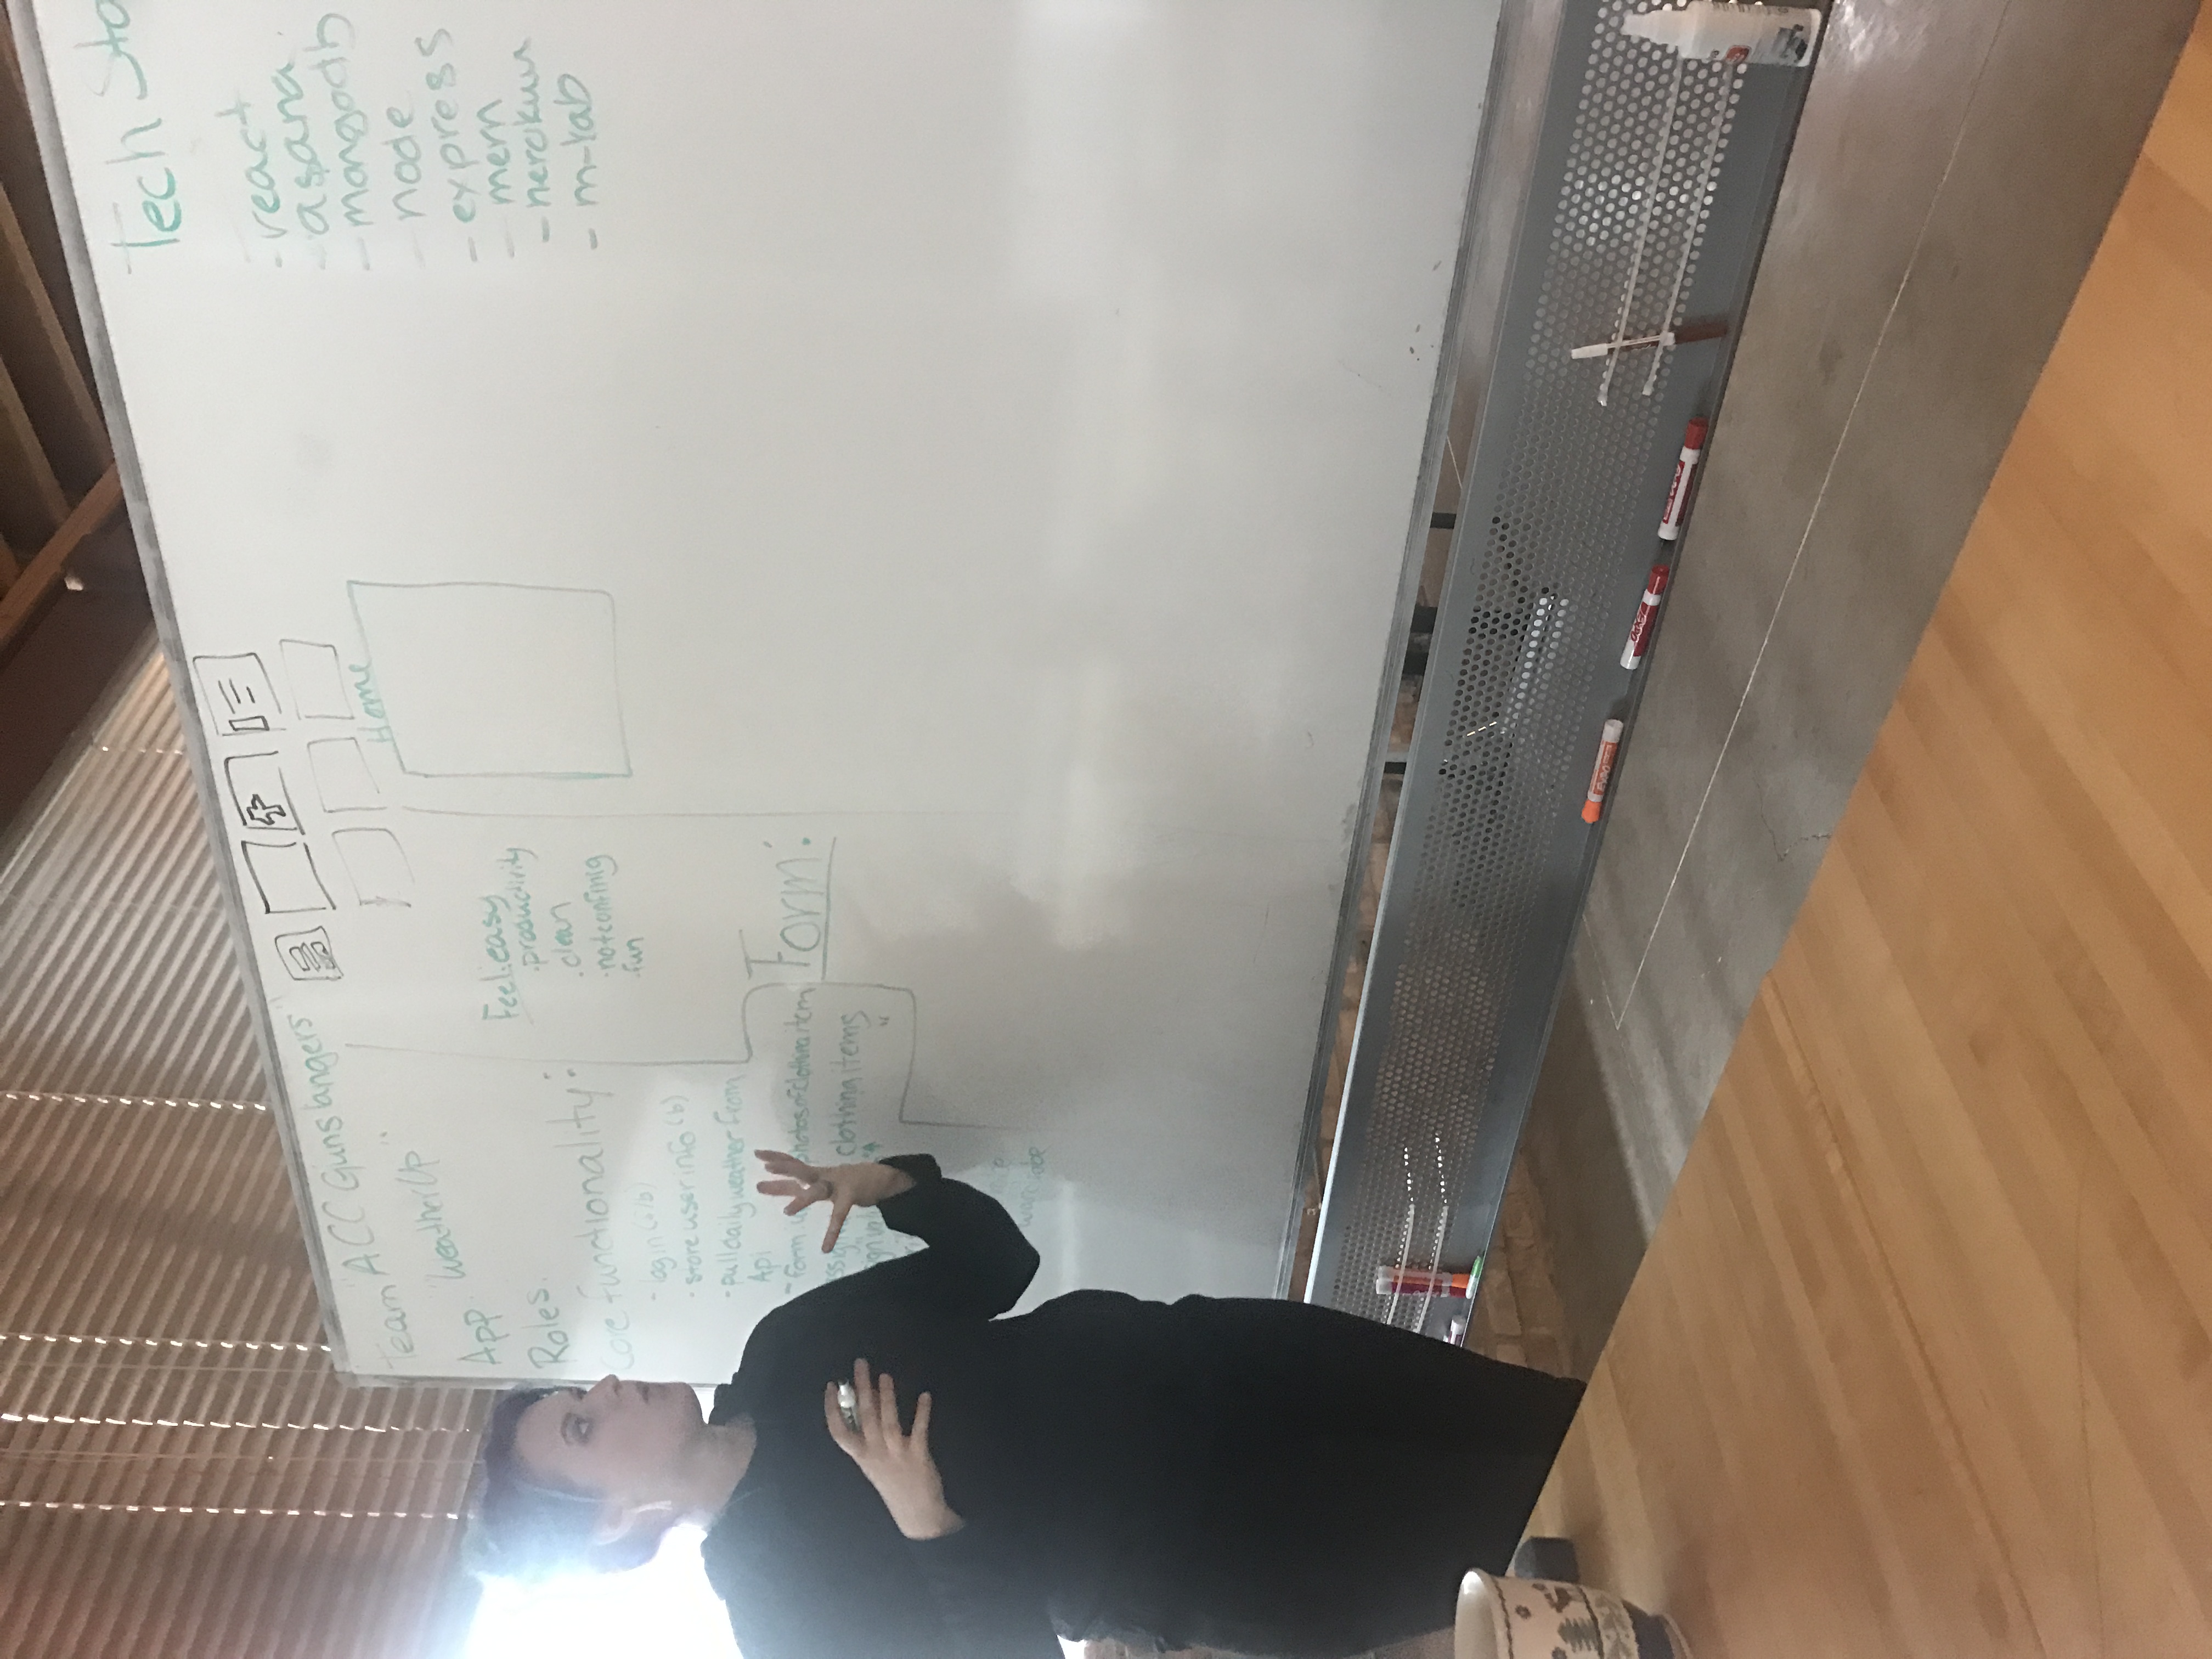 Team "ACC Gunslangers"
App: "WeatherUp"
Roles:
Core functionality:
- login (f/b)
- store user info (b)
- pull daily weather from
Api
- form: photos of clothing item
clothing items
wardrobe
Feel: easy
. productivity
. clean
. notconfinig
. fun
Form:
Home
Tech Sta
- react
- asana
- mongodb
- node
- express
- mern
- herokuu
- m-lab
EXPO